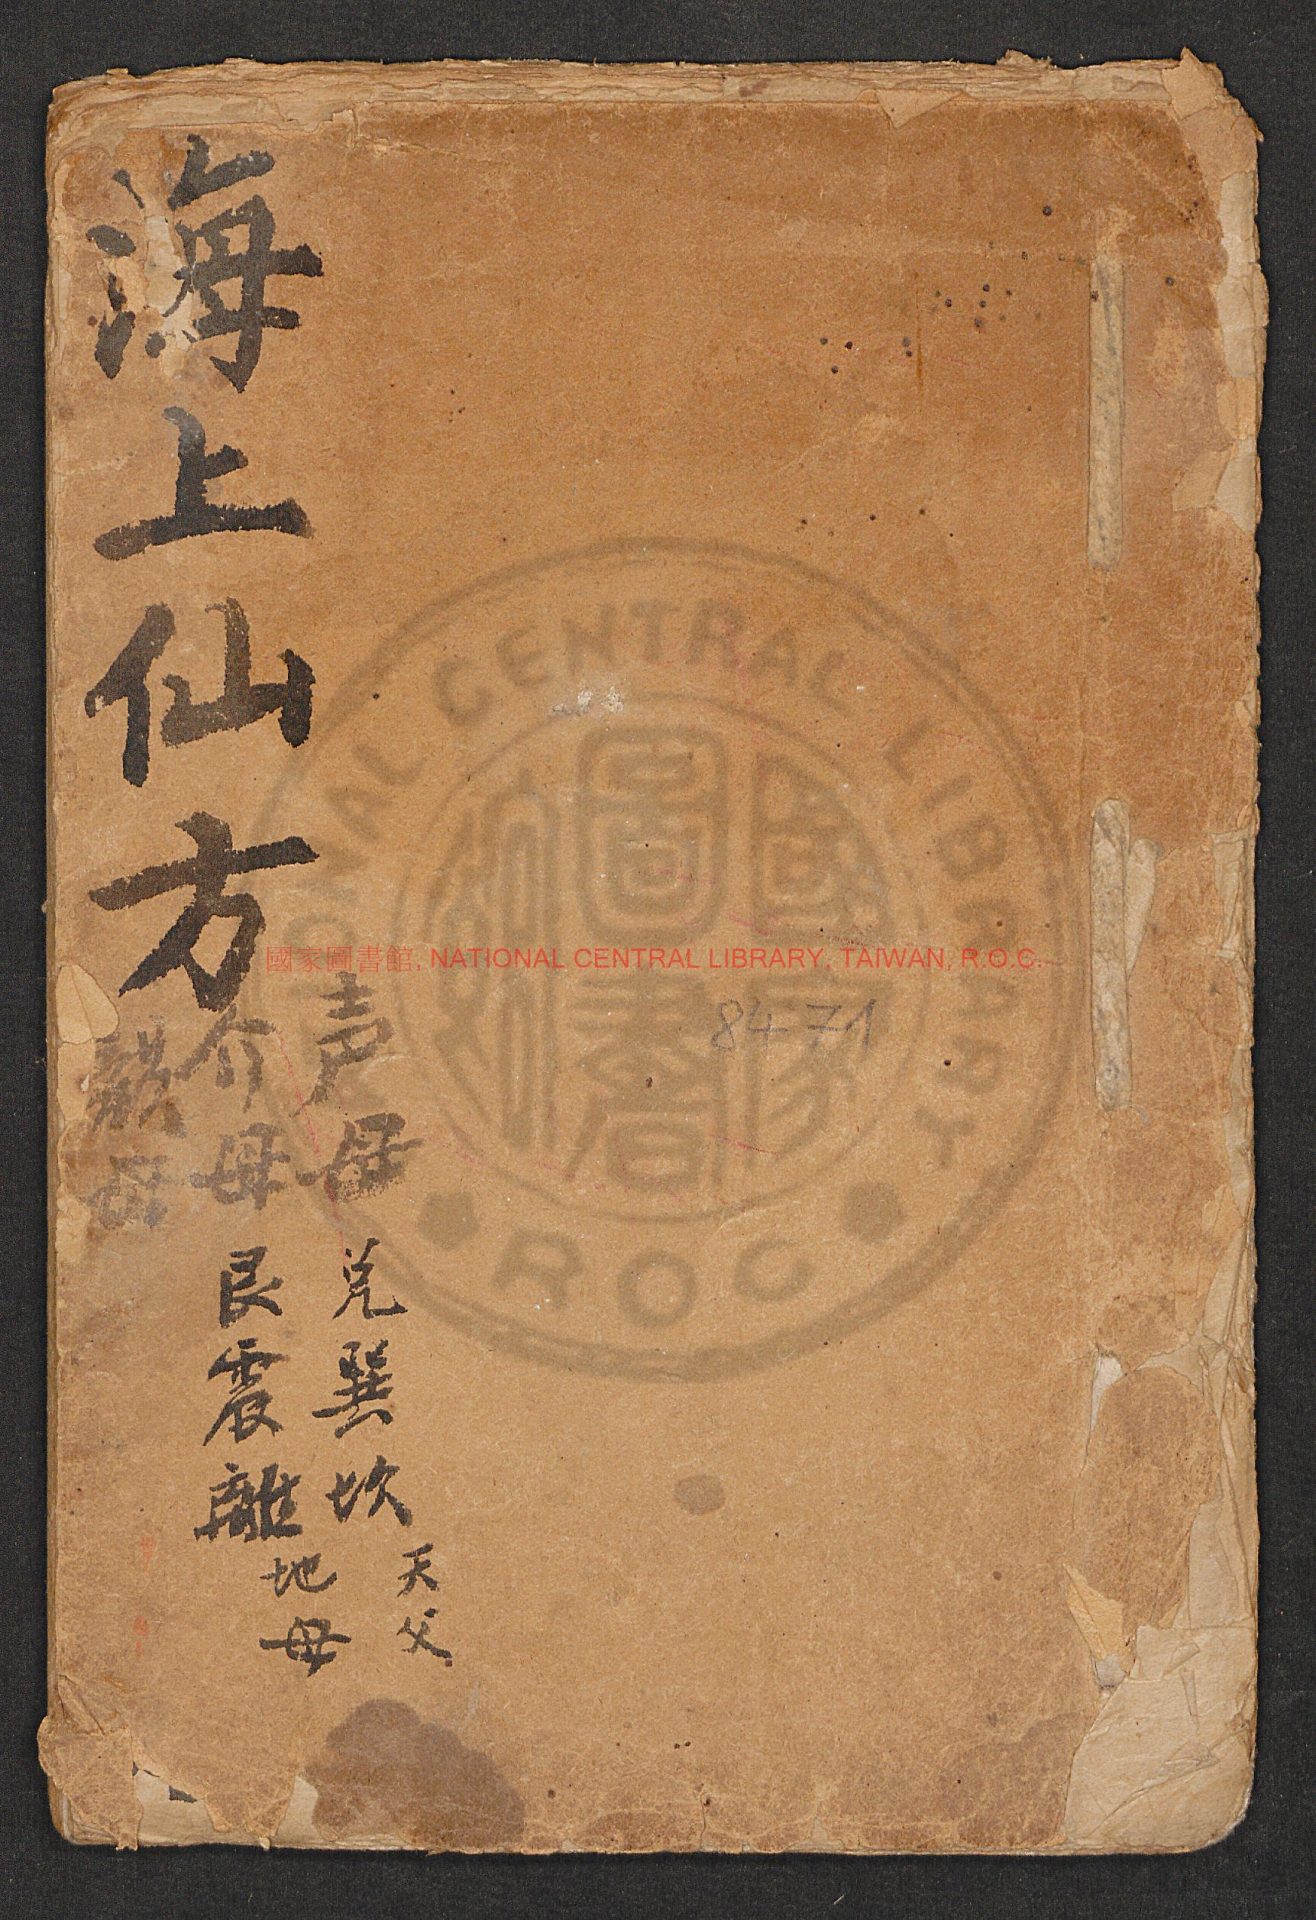 海上仙方
声母
介母
韻母
兑巽坎
天父
艮震離
地母
8471
國家圖書館, NATIONAL CENTRAL LIBRARY, TAIWAN, R.O.C.
NATIONAL CENTRAL LIBRARY
R O C
國家圖書館